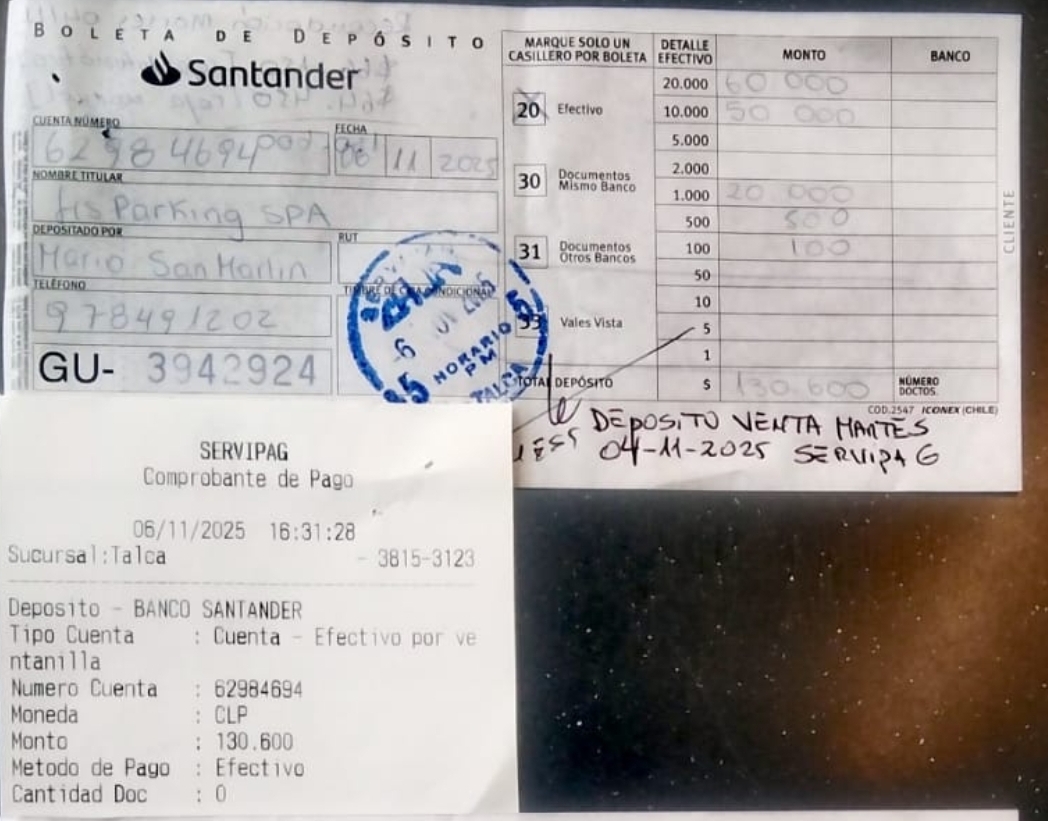 BOLETA DE DEPÓSITO
Santander
CUENTA NÚMERO
62984694
FECHA
06 11 2025
NOMBRE TITULAR
HS Parking SPA
DEPOSITADO POR
Mario San Martin
RUT
TELÉFONO
978491202
GU- 3942924
MARQUE SOLO UN CASILLERO POR BOLETA
20 Efectivo
30 Documentos Mismo Banco
31 Documentos Otros Bancos
33 Vales Vista
DETALLE EFECTIVO MONTO BANCO
20.000 60 000
10.000 50 000
5.000
2.000
1.000 20 000
500 500
100 100
50
10
5
1
TOTAL DEPÓSITO $ 130.600 NÚMERO DOCTOS.
COD.2547 ICONEX (CHILE)
CLIENTE
HORARIO PM
TALCA
DEPOSITO VENTA MARTES
04-11-2025 SERVIPAG
SERVIPAG
Comprobante de Pago
06/11/2025 16:31:28
Sucursal:Talca - 3815-3123
Deposito - BANCO SANTANDER
Tipo Cuenta : Cuenta - Efectivo por ve
ntanilla
Numero Cuenta : 62984694
Moneda : CLP
Monto : 130.600
Metodo de Pago : Efectivo
Cantidad Doc : 0